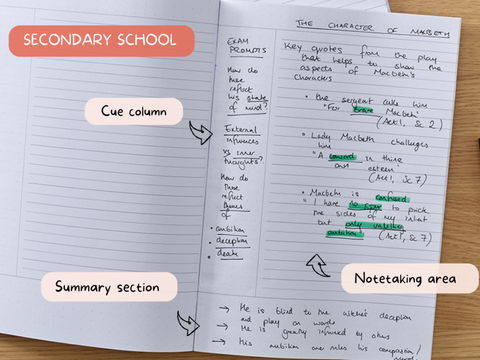 SECONDARY SCHOOL
Cue column
Summary section
Notetaking area
THE CHARACTER OF MACBETH
EXAM
PROMPTS
How do
these
reflect
his state
of mind?
External
influences
vs inner
thoughts?
How do
these
reflect
themes
of
• ambition
• deception
• death
Key quotes from the play
that helps to show the
aspects of Macbeth's
characters
• The sergeant calls him
"For brave Macbeth"
(Act 1, Sc 2)
• Lady Macbeth challenges
him
"A coward in thine
own esteem"
(Act 1, Sc 7)
• Macbeth is confused
"I have no spur to prick
the sides of my intent
but only vaulting
ambition" (Act 1, Sc 7)
→ He is blind to the witches' deception
and play on words
→ He is greatly influenced by others
→ His ambition over rules his compassion/